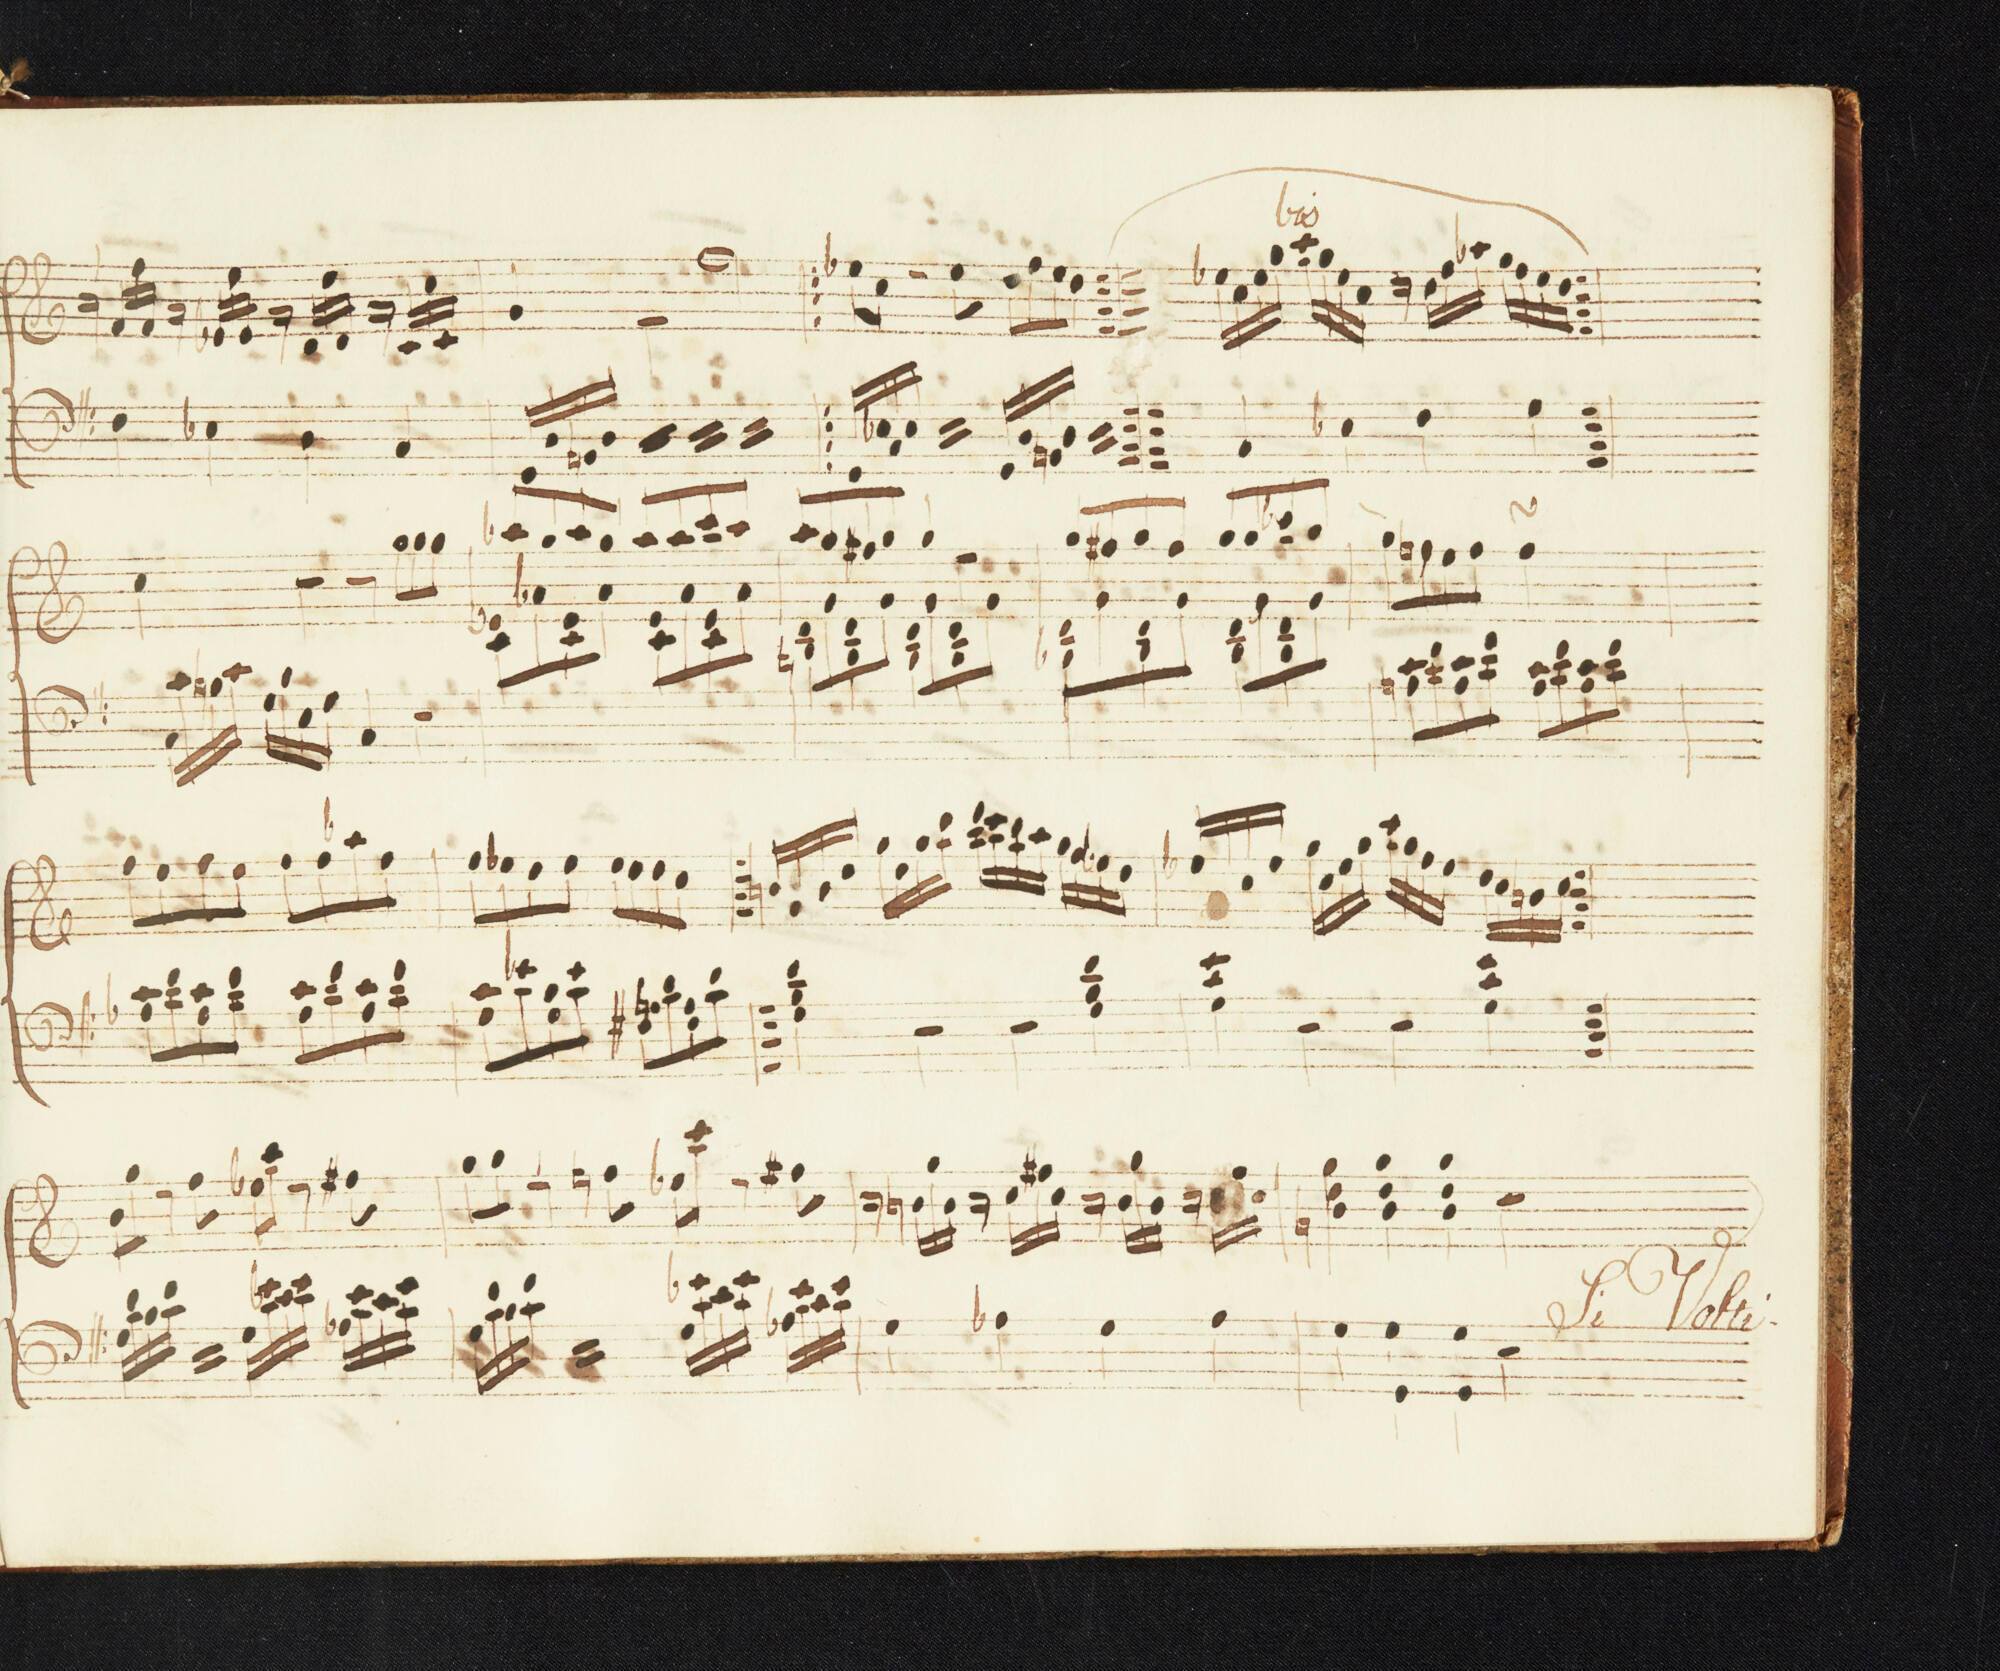 bis
Si Volti.